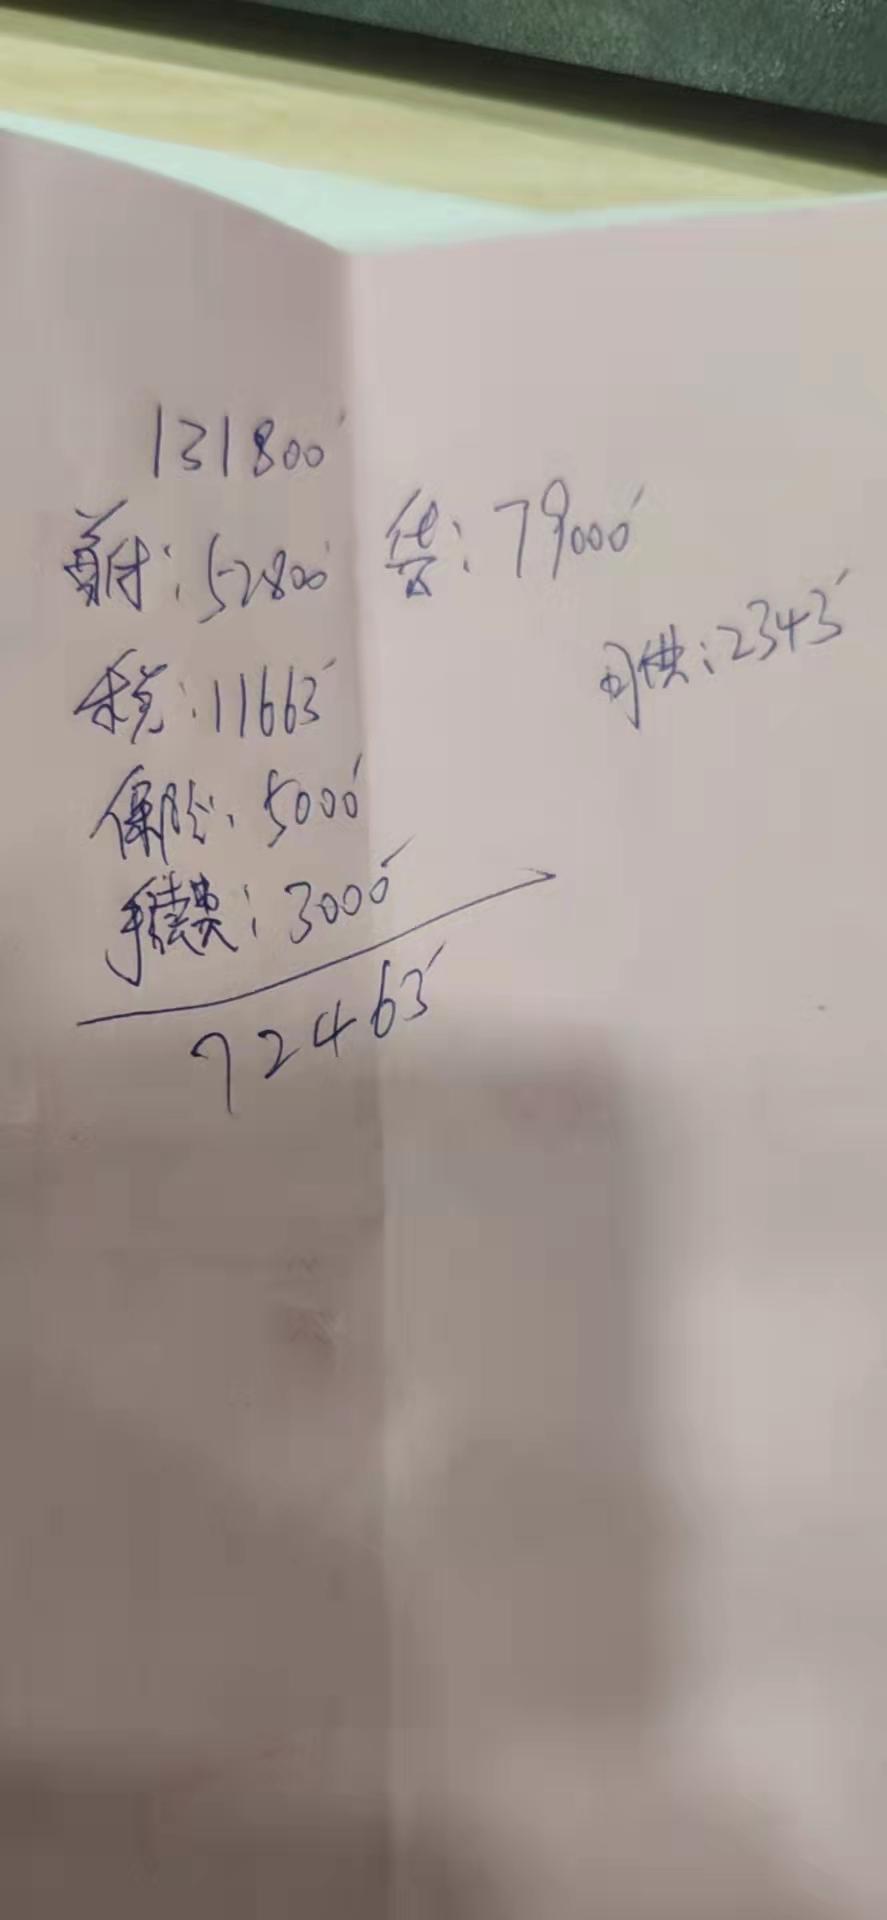 131800
首付：52800 贷：79000
月供：2343
税：11663
保险：5000
手续费：3000
72463